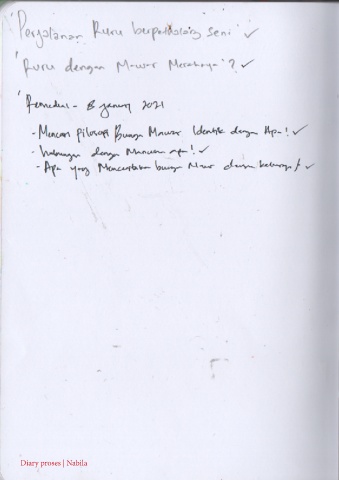 "Perjalanan Ruru berpetualang seni"
"Ruru dengan Mawar Merahnya"?
Remedial - 8 january 2021
- Mencari Filosofi Bunga Mawar Identik dengan Apa!
- hubungan dengan Manusia apa!
- Apa yang Menceritakan bunga Mawar dengan keluarga!
Diary proses | Nabila